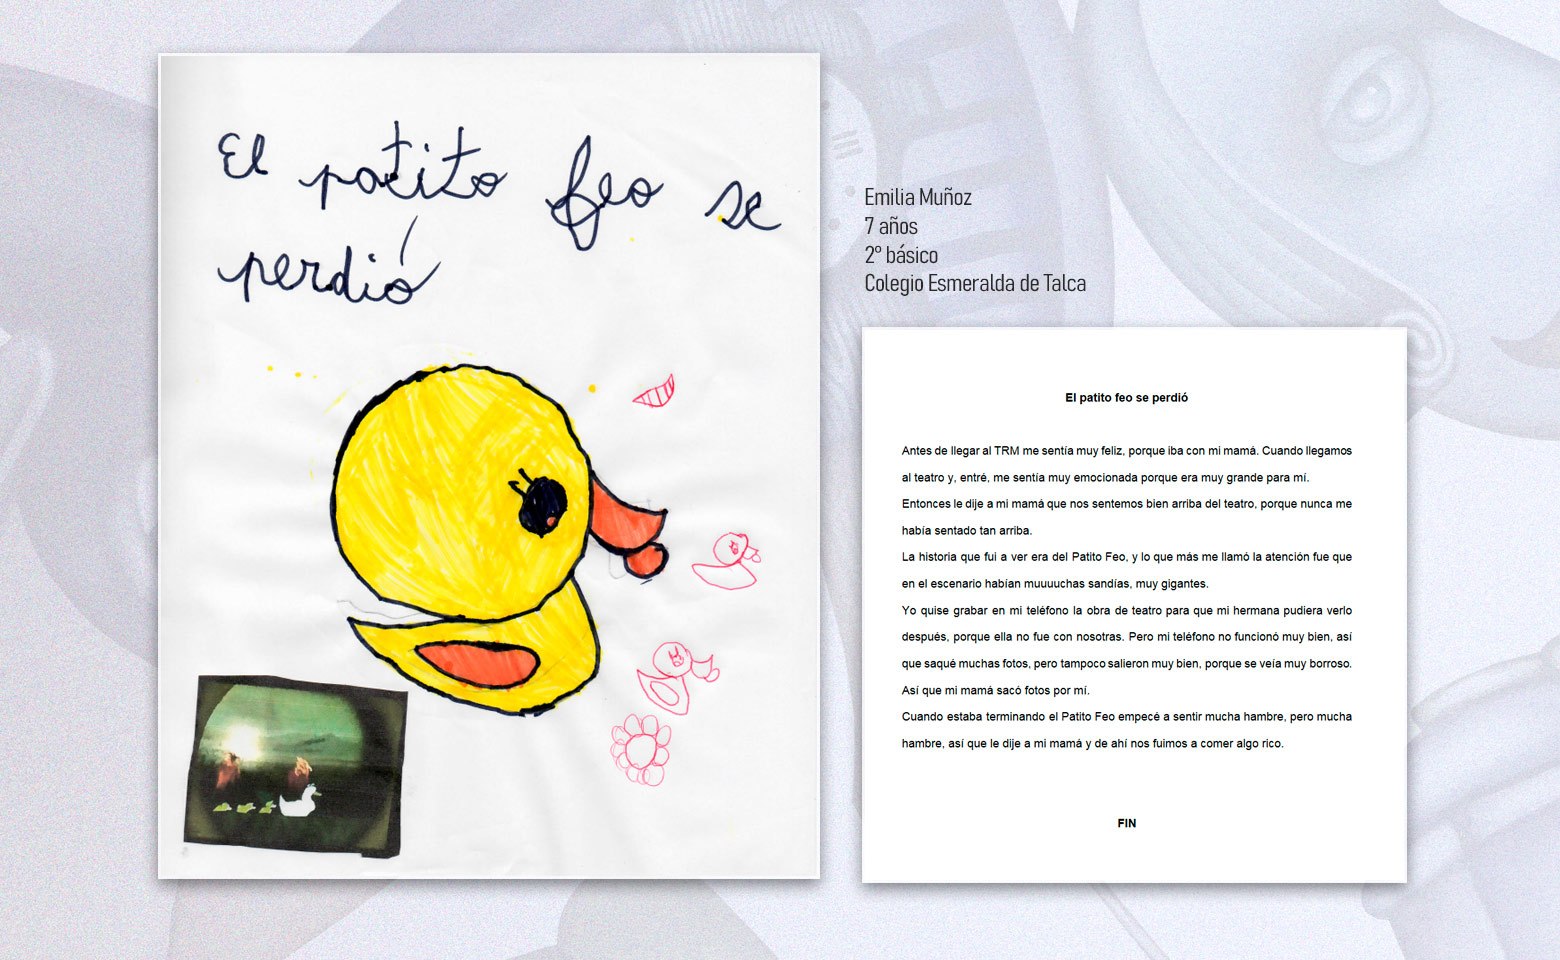 El patito feo se
perdió
Emilia Muñoz
7 años
2º básico
Colegio Esmeralda de Talca
El patito feo se perdió
Antes de llegar al TRM me sentía muy feliz, porque iba con mi mamá. Cuando llegamos
al teatro y, entré, me sentía muy emocionada porque era muy grande para mí.
Entonces le dije a mi mamá que nos sentemos bien arriba del teatro, porque nunca me
había sentado tan arriba.
La historia que fui a ver era del Patito Feo, y lo que más me llamó la atención fue que
en el escenario habían muuuuchas sandías, muy gigantes.
Yo quise grabar en mi teléfono la obra de teatro para que mi hermana pudiera verlo
después, porque ella no fue con nosotras. Pero mi teléfono no funcionó muy bien, así
que saqué muchas fotos, pero tampoco salieron muy bien, porque se veía muy borroso.
Así que mi mamá sacó fotos por mí.
Cuando estaba terminando el Patito Feo empecé a sentir mucha hambre, pero mucha
hambre, así que le dije a mi mamá y de ahí nos fuimos a comer algo rico.
FIN